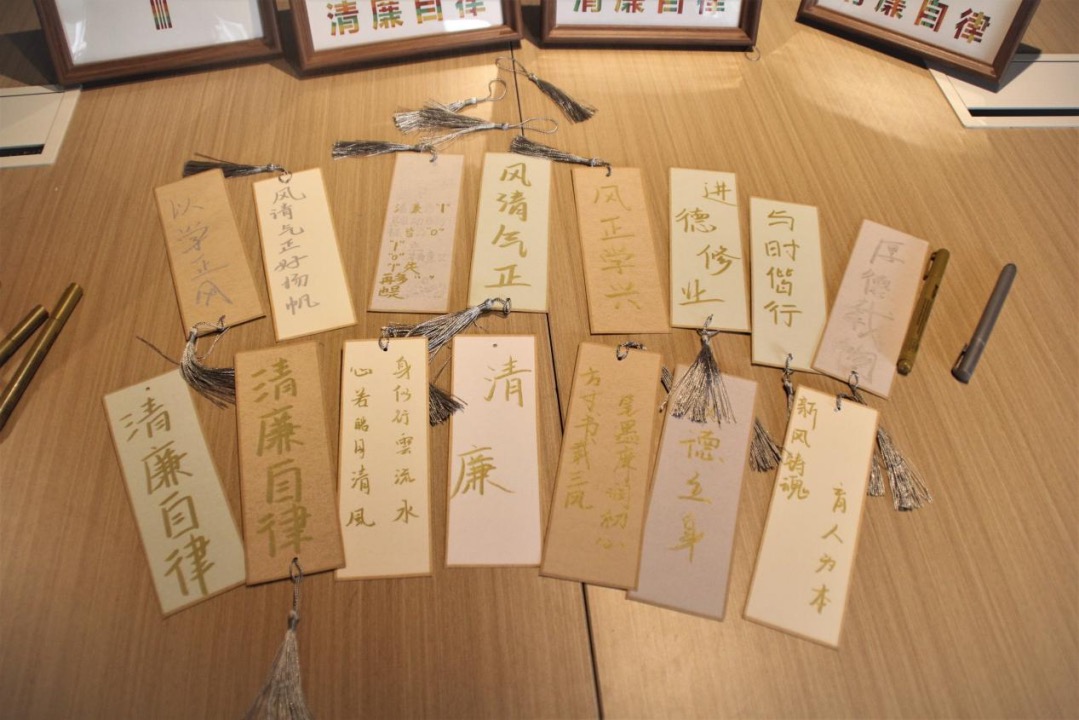 清廉自律
清廉自律
清廉自律
以学正风
风清气正好扬帆
风清气正
风正学兴
进德修业
与时偕行
厚德载物
清廉自律
清廉自律
身似行雲流水
心若皓月清風
清廉
方寸书载三风
初心
德立身
新风铸魂
育人为本